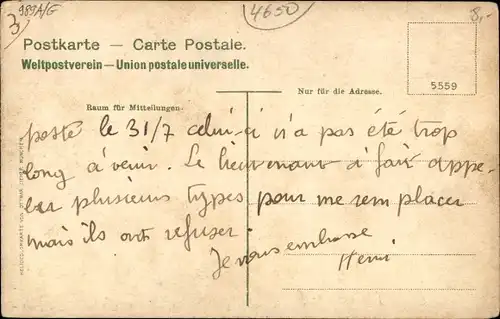 989A/G
3
4650
8,-
Postkarte — Carte Postale.
Weltpostverein — Union postale universelle.
5559
Nur für die Adresse.
Raum für Mitteilungen.
poste le 31/7 celui-ci n'a pas été trop
long à venir. Le lieutenant a fait appe-
ler plusieurs types pour me remplacer
mais ils ont refuser
Je vous embrasse
Henri